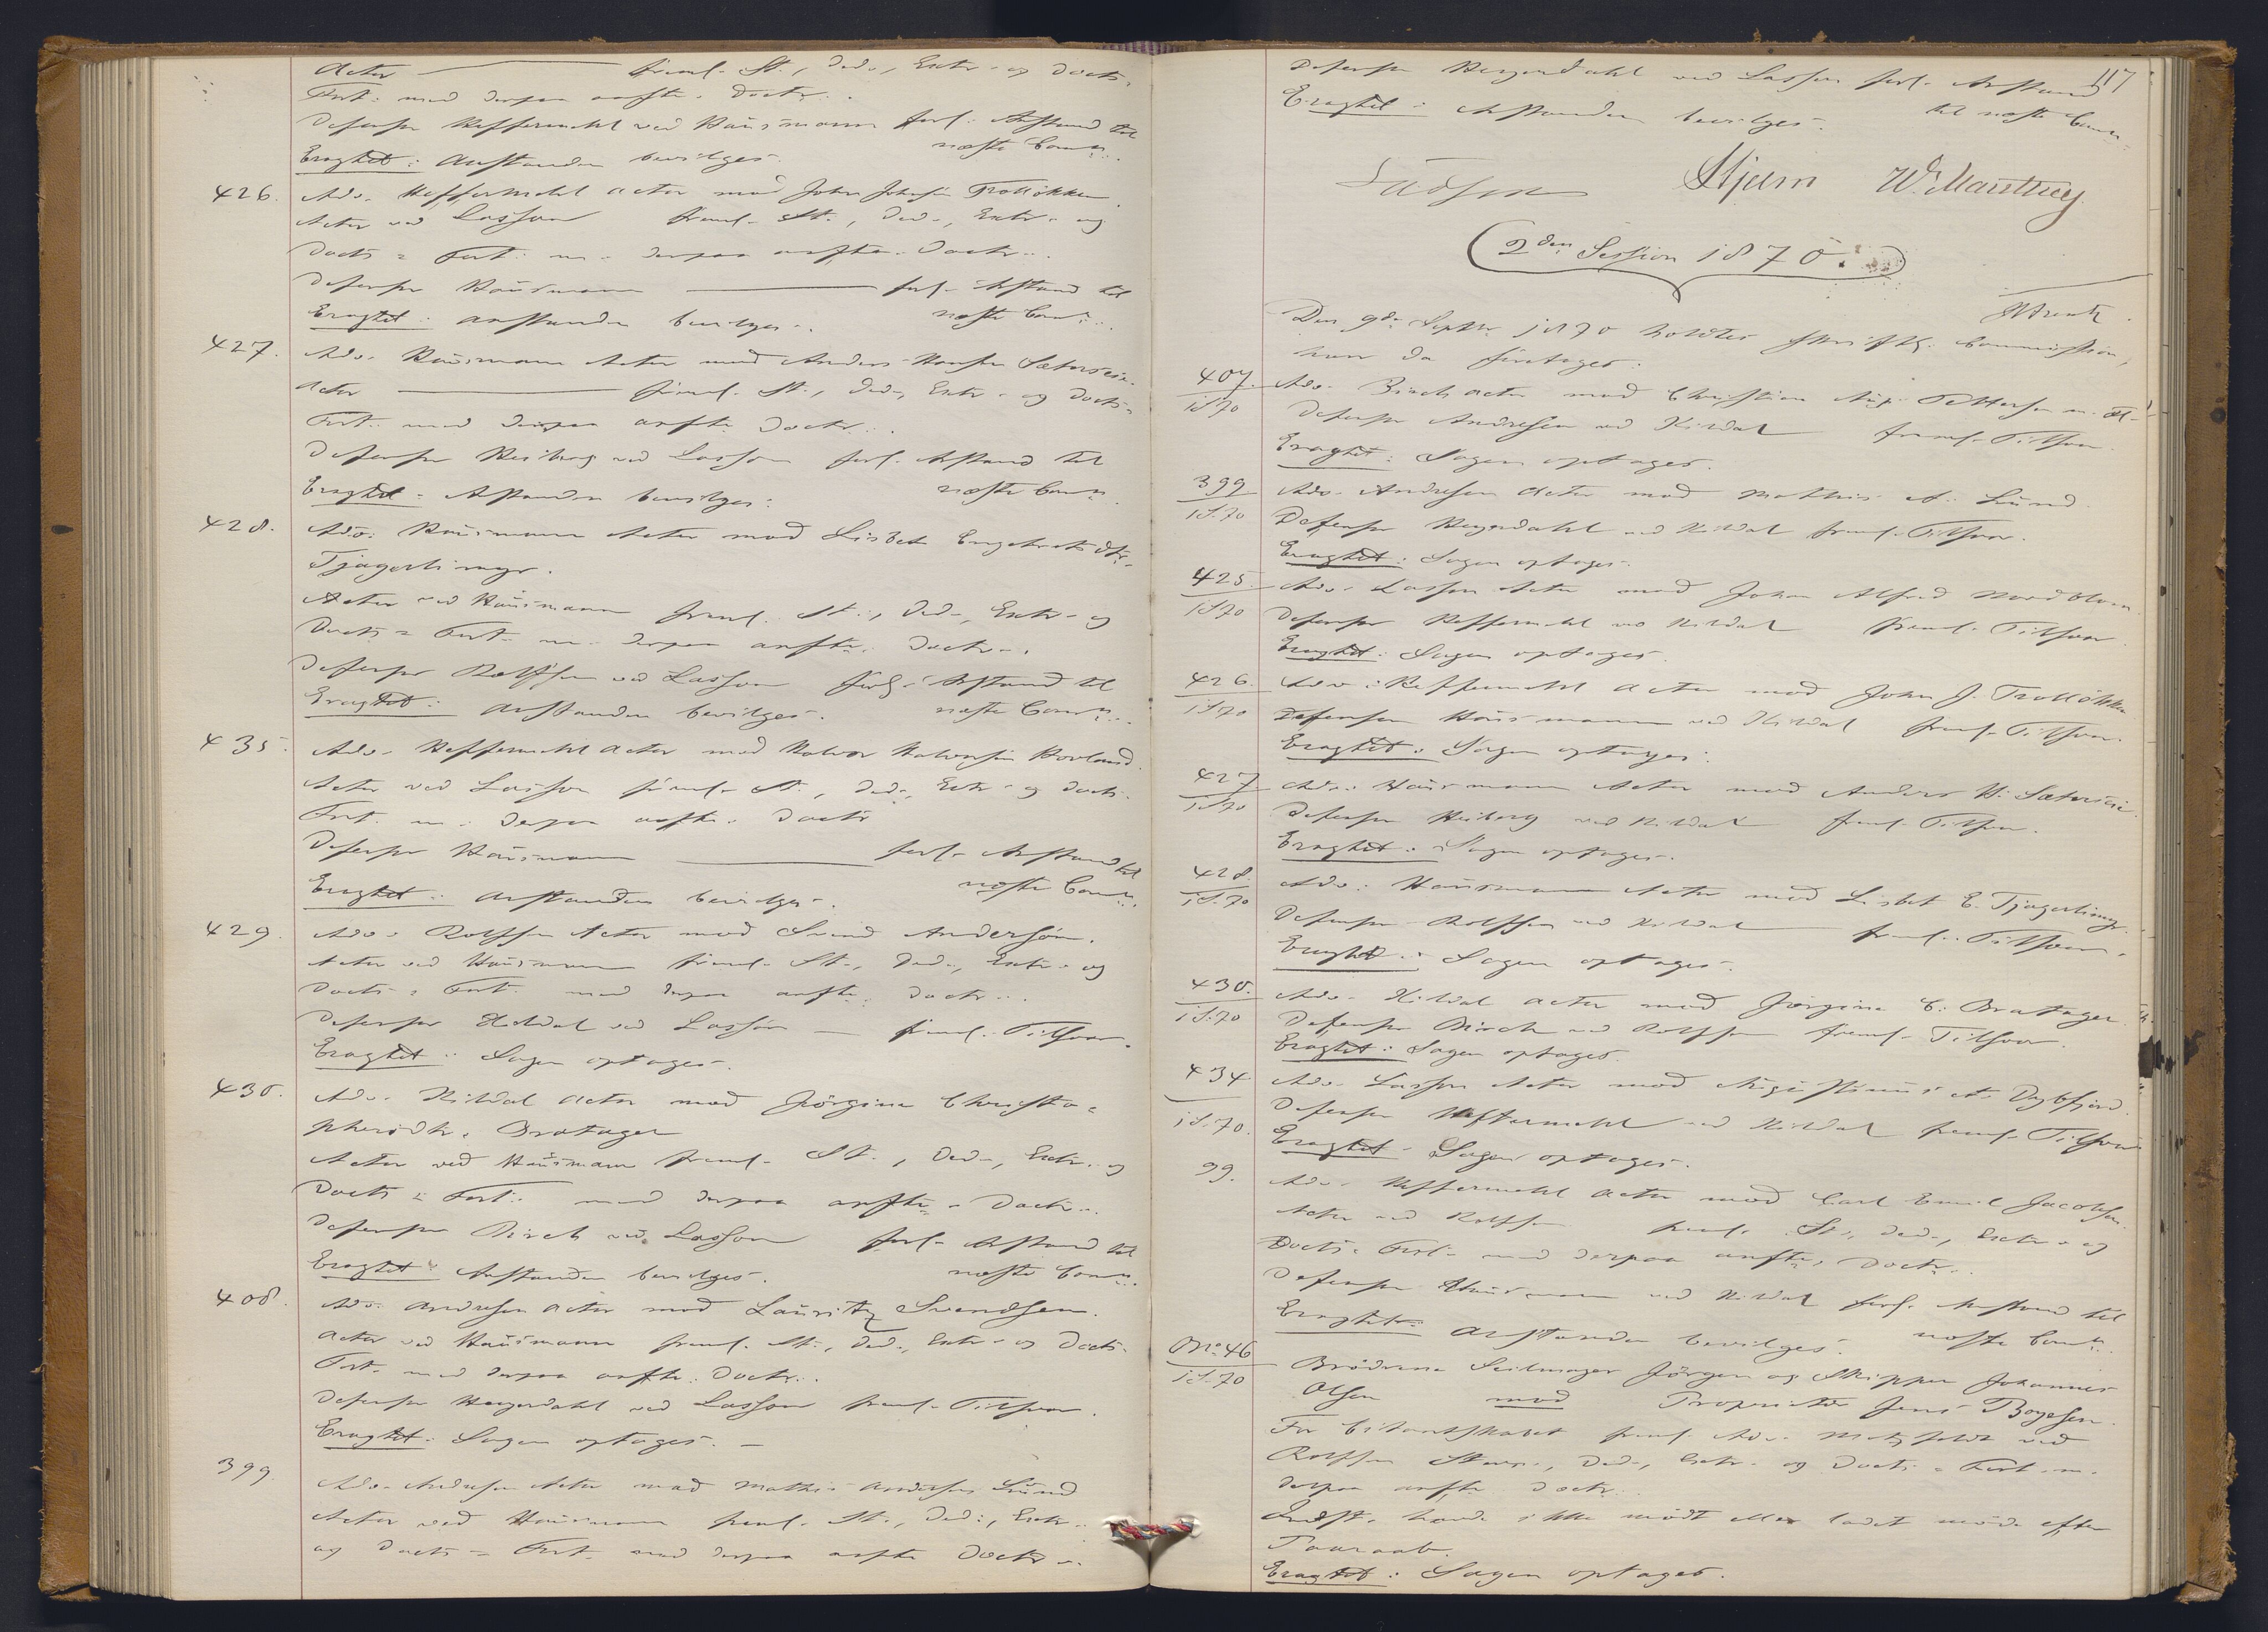 Actor freml. St., Ded., Extr. og Docts.
Fort. med derpaa anfte. Docts.
Defensor Heffermehl ved Hausmann forl. Anstand til
næste Comn.
Eragtet: Anstanden bevilges.
426. Adv. Heffermehl Actor mod John Johnsen Trolløkken.
Actor ved Lasson freml. St., Ded., Extr. og
Docts. Fort. m. derpaa anfte. Docts.
Defensor Hausmann forl. Anstand til
næste Comn.
Eragtet: Anstanden bevilges.
427. Adv. Hausmann Actor mod Anders Hansen Sæterseie.
Actor freml. St., Ded., Extr. og Docts.
Fort. med derpaa anfte Docts.
Defensor Heiberg ved Lasson forl. Anstand til
næste Comn.
Eragtet: Anstanden bevilges.
428. Adv. Hausmann Actor mod Lisbet Engebretsdtr.
Tjagerlimyr.
Actor ved Hausmann freml. St., Ded., Extr. og
Docts. Fort. m. derpaa anfte. Docts.
Defensor Rolfsen ved Lasson forl. Anstand til
næste Comn.
Eragtet: Anstanden bevilges.
435. Adv. Heffermehl Actor mod Halvor Halvorsen Hovland.
Actor ved Lasson freml. St., Ded., Extr. og Docts.
Fort. m. derpaa anfte. Docts
Defensor Hausmann forl. Anstand til
næste Comn.
Eragtet: Anstanden bevilges.
429. Adv. Rolfsen Actor mod Svend Andersön.
Actor ved Hausmann freml. St., Ded., Extr. og
Docts. Fort. med derpaa anfte. Docts.
Defensor Kildal ved Lasson freml. Tilsvar.
Eragtet: Sagen optages.
430. Adv. Kildal Actor mod Jörgine Christo=
phersdtr. Bratager
Actor ved Hausmann freml. St., Ded., Extr. og
Docts. Fort. med derpaa anfte. Docts.
Defensor Birch ved Lasson forl. Anstand til
næste Comn.
Eragtet: Anstanden bevilges.
408. Adv. Andresen Actor mod Lauritz Svendsen.
Actor ved Hausmann freml. St., Ded., Extr. og Docts.
Fort. med derpaa anfte. Docts.
Defensor Heyerdahl ved Lasson freml. Tilsvar.
Eragtet: Sagen optages. —
399. Adv. Andresen Actor mod Mathis Andersen Lund
Actor ved Hausmann freml. St., Ded., Extr.
og Docts. Fort. med derpaa anfte Docts.
117
Defensor Heyerdahl ved Lasson forl. Anstand
til næste Comn.
Eragtet: Anstanden bevilges.
Hjelm W. Manthey
2den Session 1870.
Den 9de Septbr. 1870 holdtes skriftl. Commission,
hvor da foretoges:
407. 1S.70 Adv. Birch Actor mod Christian Aug. Pettersen m. Fl.
Defensor Andresen ved Kildal freml. Tilsvar.
Eragtet: Sagen optages.
399 1S.70 Adv. Andresen Actor mod Mathis A. Lund.
Defensor Heyerdahl ved Kildal freml. Tilsvar.
Eragtet: Sagen optages.
425. 1S.70 Adv. Lasson Actor mod Johan Alfred Nordblom.
Defensor Heffermehl ved Kildal freml. Tilsvar.
Eragtet: Sagen optages.
426. 1S.70 Adv. Heffermehl Actor mod John J. Trolløkken.
Defensor Hausmann ved Kildal freml. Tilsvar.
Eragtet: Sagen optages.
427 1S.70 Adv. Hausmann Actor mod Anders H. Sæterseie.
Defensor Heiberg ved Kildal freml. Tilsvar.
Eragtet: Sagen optages.
428. 1S.70 Adv. Hausmann Actor mod Lisbet E. Tjagerlimyr.
Defensor Rolfsen ved Kildal freml. Tilsvar.
Eragtet: Sagen optages.
430. 1S.70 Adv. Kildal Actor mod Jörgine C. Bratager.
Defensor Birch ved Rolfsen freml. Tilsvar.
Eragtet: Sagen optages.
434 1S.70. Adv. Lasson Actor mod Augustinus A. Dybfjord.
Defensor Heffermehl ved Kildal freml. Tilsvar
Eragtet: Sagen optages.
99. Adv. Heffermehl Actor mod Carl Emil Jacobsen.
Actor ved Rolfsen freml. St., Ded., Extr. og
Docts. Fort. med derpaa anfte. Docts.
Defensor Hausmann ved Kildal forl. Anstand til
næste Comn.
Eragtet: Anstanden bevilges.
No. 46 1S.70 Brødrene Seilmager Jörgen og Skipper Johannes
Olsen mod Proprietær Jens Boyesen.
For Citantskabet freml. Adv. ved
Rolfsen Stevn., Ded., Extr. og Docts. Fort. m.
derpaa anfte Docts.
Indst. havde ikke mödt eller ladet möde efter
Paaraab.
Eragtet: Sagen optages.